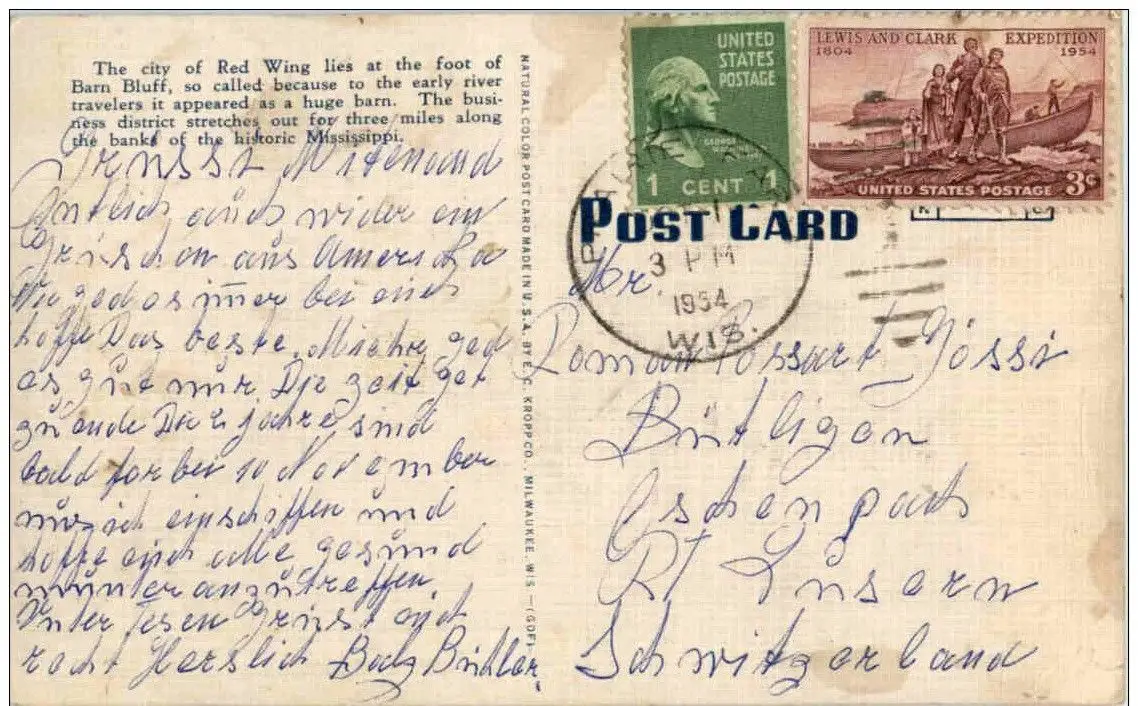 The city of Red Wing lies at the foot of
Barn Bluff, so called because to the early river
travelers it appeared as a huge barn. The busi-
ness district stretches out for three miles along
the banks of the historic Mississippi.
Grüsst Miteinand
Entlich auch wider ein
Grüschen aus Amerika
Wie ged es imer bei euch
hoffe Das beste. Mir ged
es gut nur Die zeit get
zu ende Die 2 jahre sind
bald for bei 10 November
mus ich einschiffen und
hoffe eich alle gesund
munter anzutreffen.
Unter Tesen Grüst eich
recht Herslich Bühler
NATURAL COLOR POST CARD MADE IN U.S.A. BY E. C. KROPP CO., MILWAUKEE, WIS. — (GOF)
UNITED
STATES
POSTAGE
1 CENT 1
LEWIS AND CLARK EXPEDITION
1804 1954
UNITED STATES POSTAGE 3c
POST CARD
3 PM
1954
WIS.
Mr.
Roman Bossart Gössi
Bütligen
Eschenpach
Kt Lusern
Schwitzerland